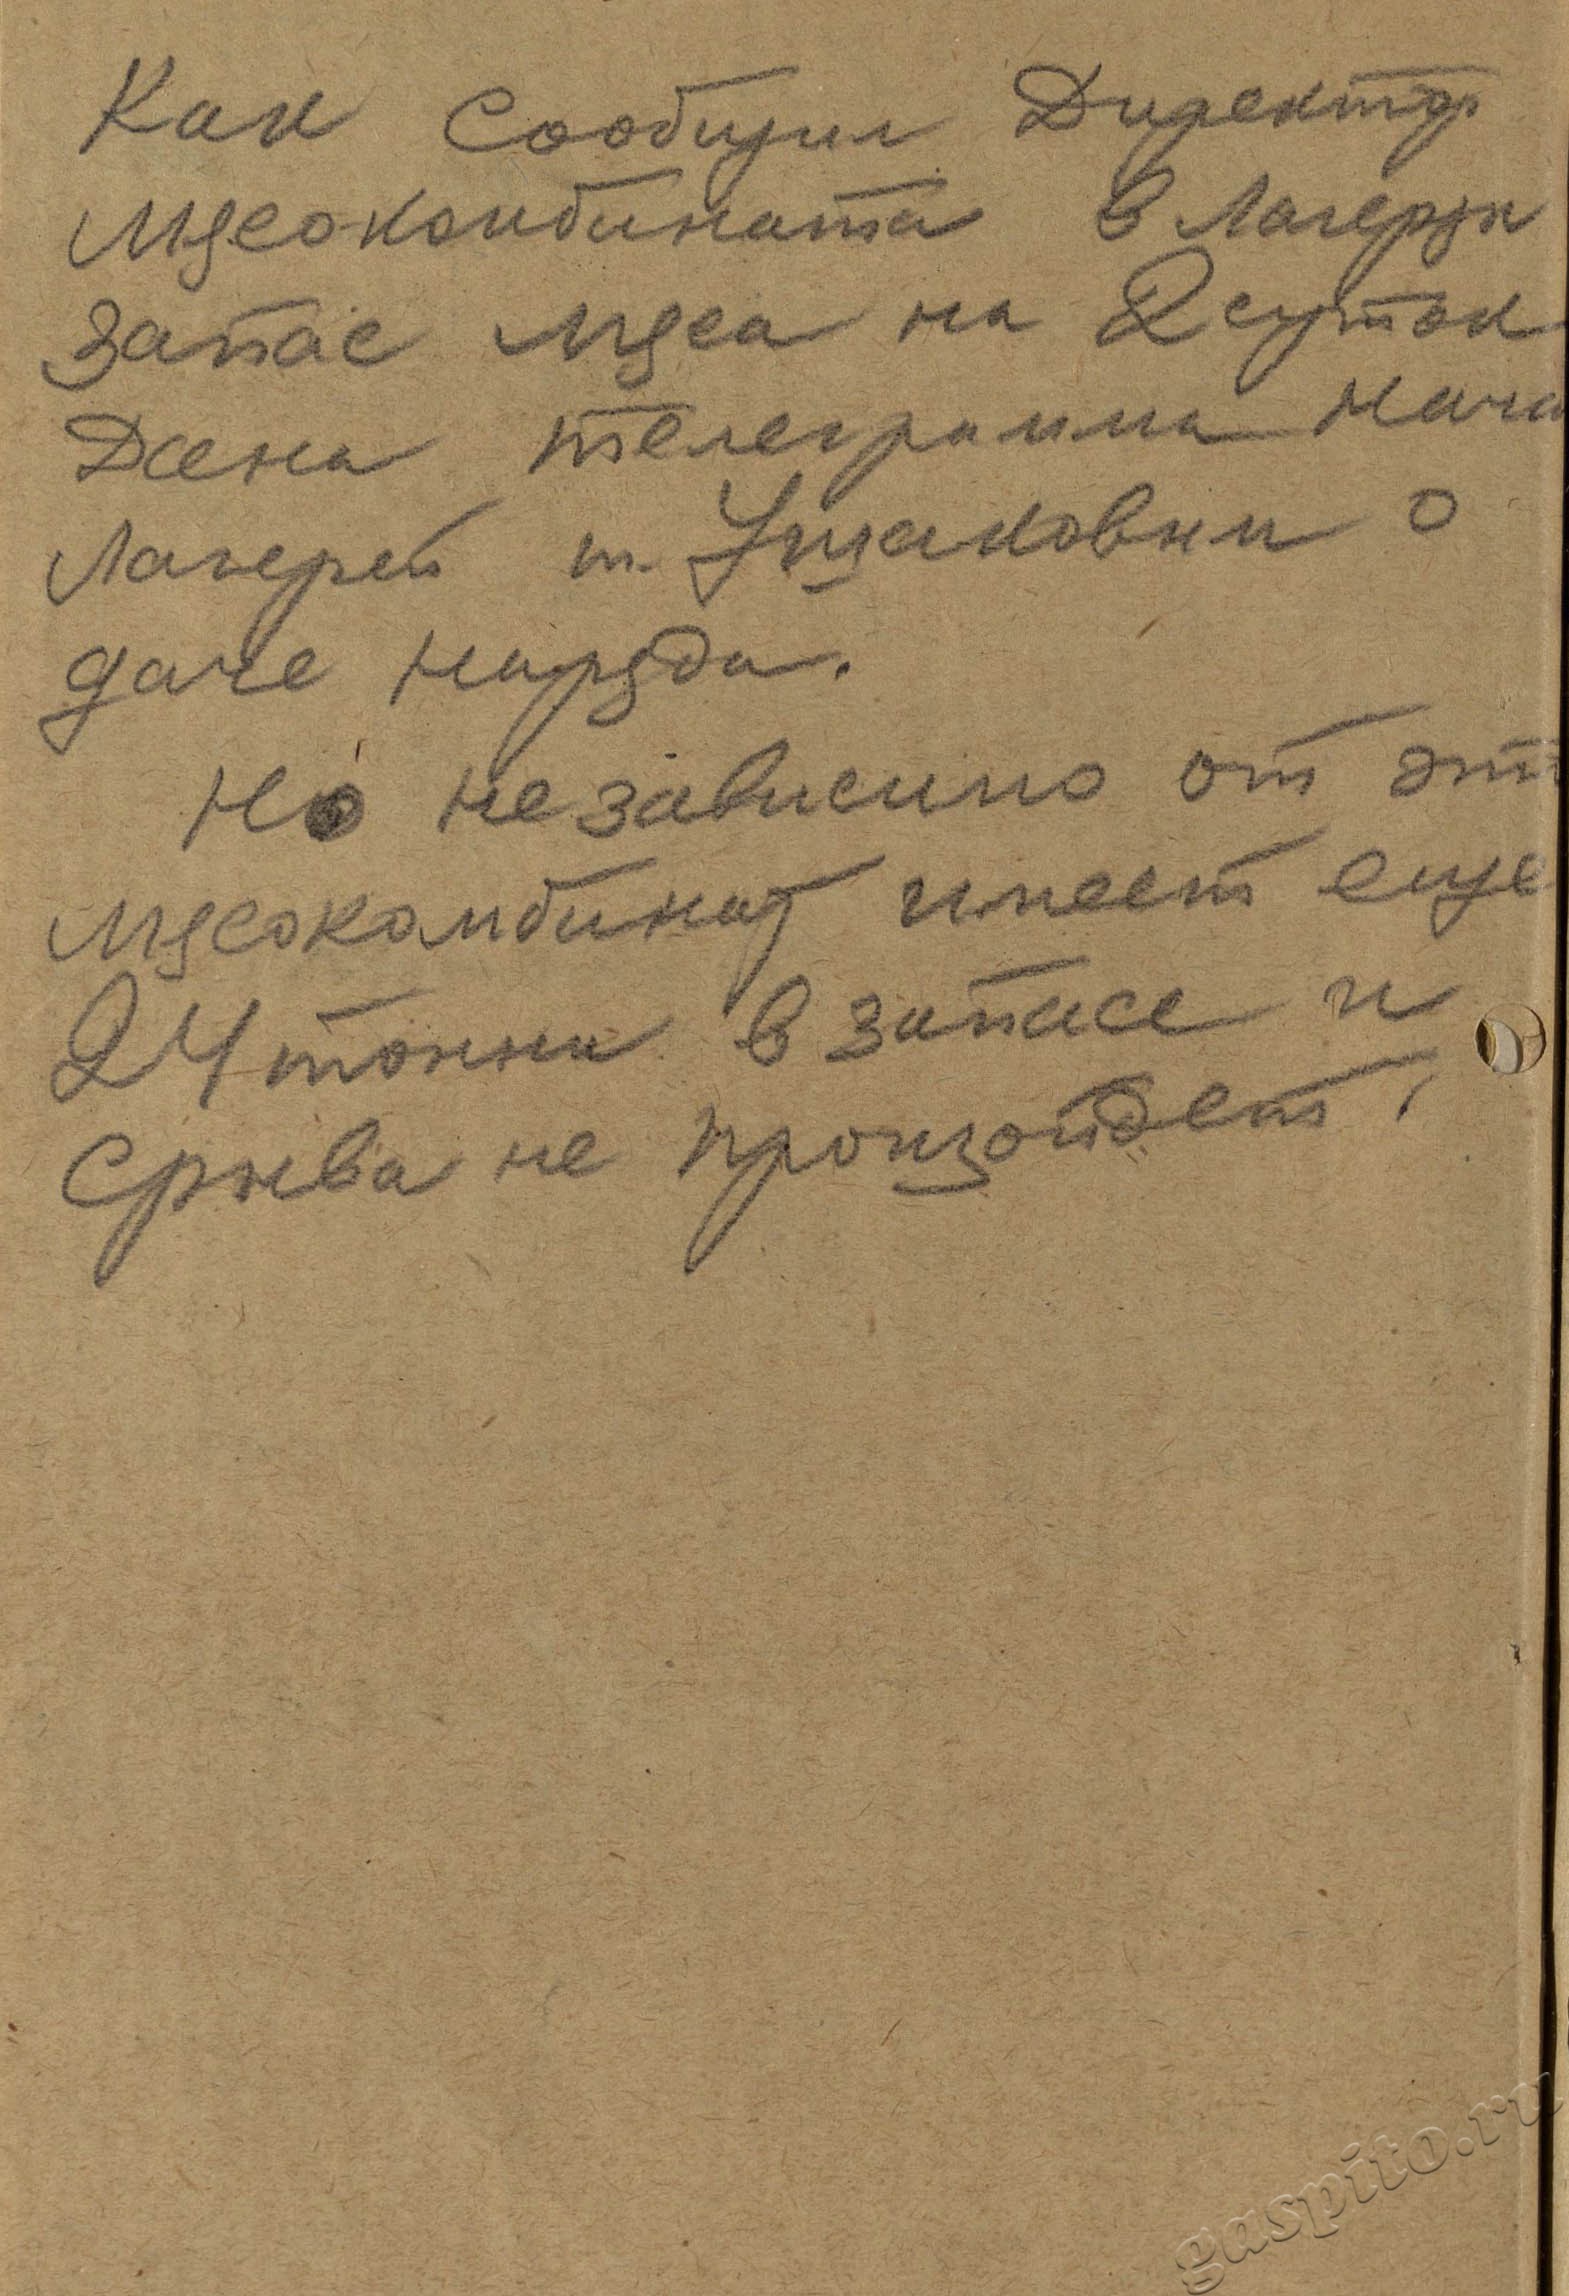 Как сообщил Директор
Мясокомбината в Лагерях
Запас мяса на 2 суток
Дана телеграмма нача
Лагерей т. Ушаковым о
даче наряда.
Но независимо от эт
мясокомбинат имеет еще
24 тонны в запасе и
срыва не произойдет.
gaspito.ru